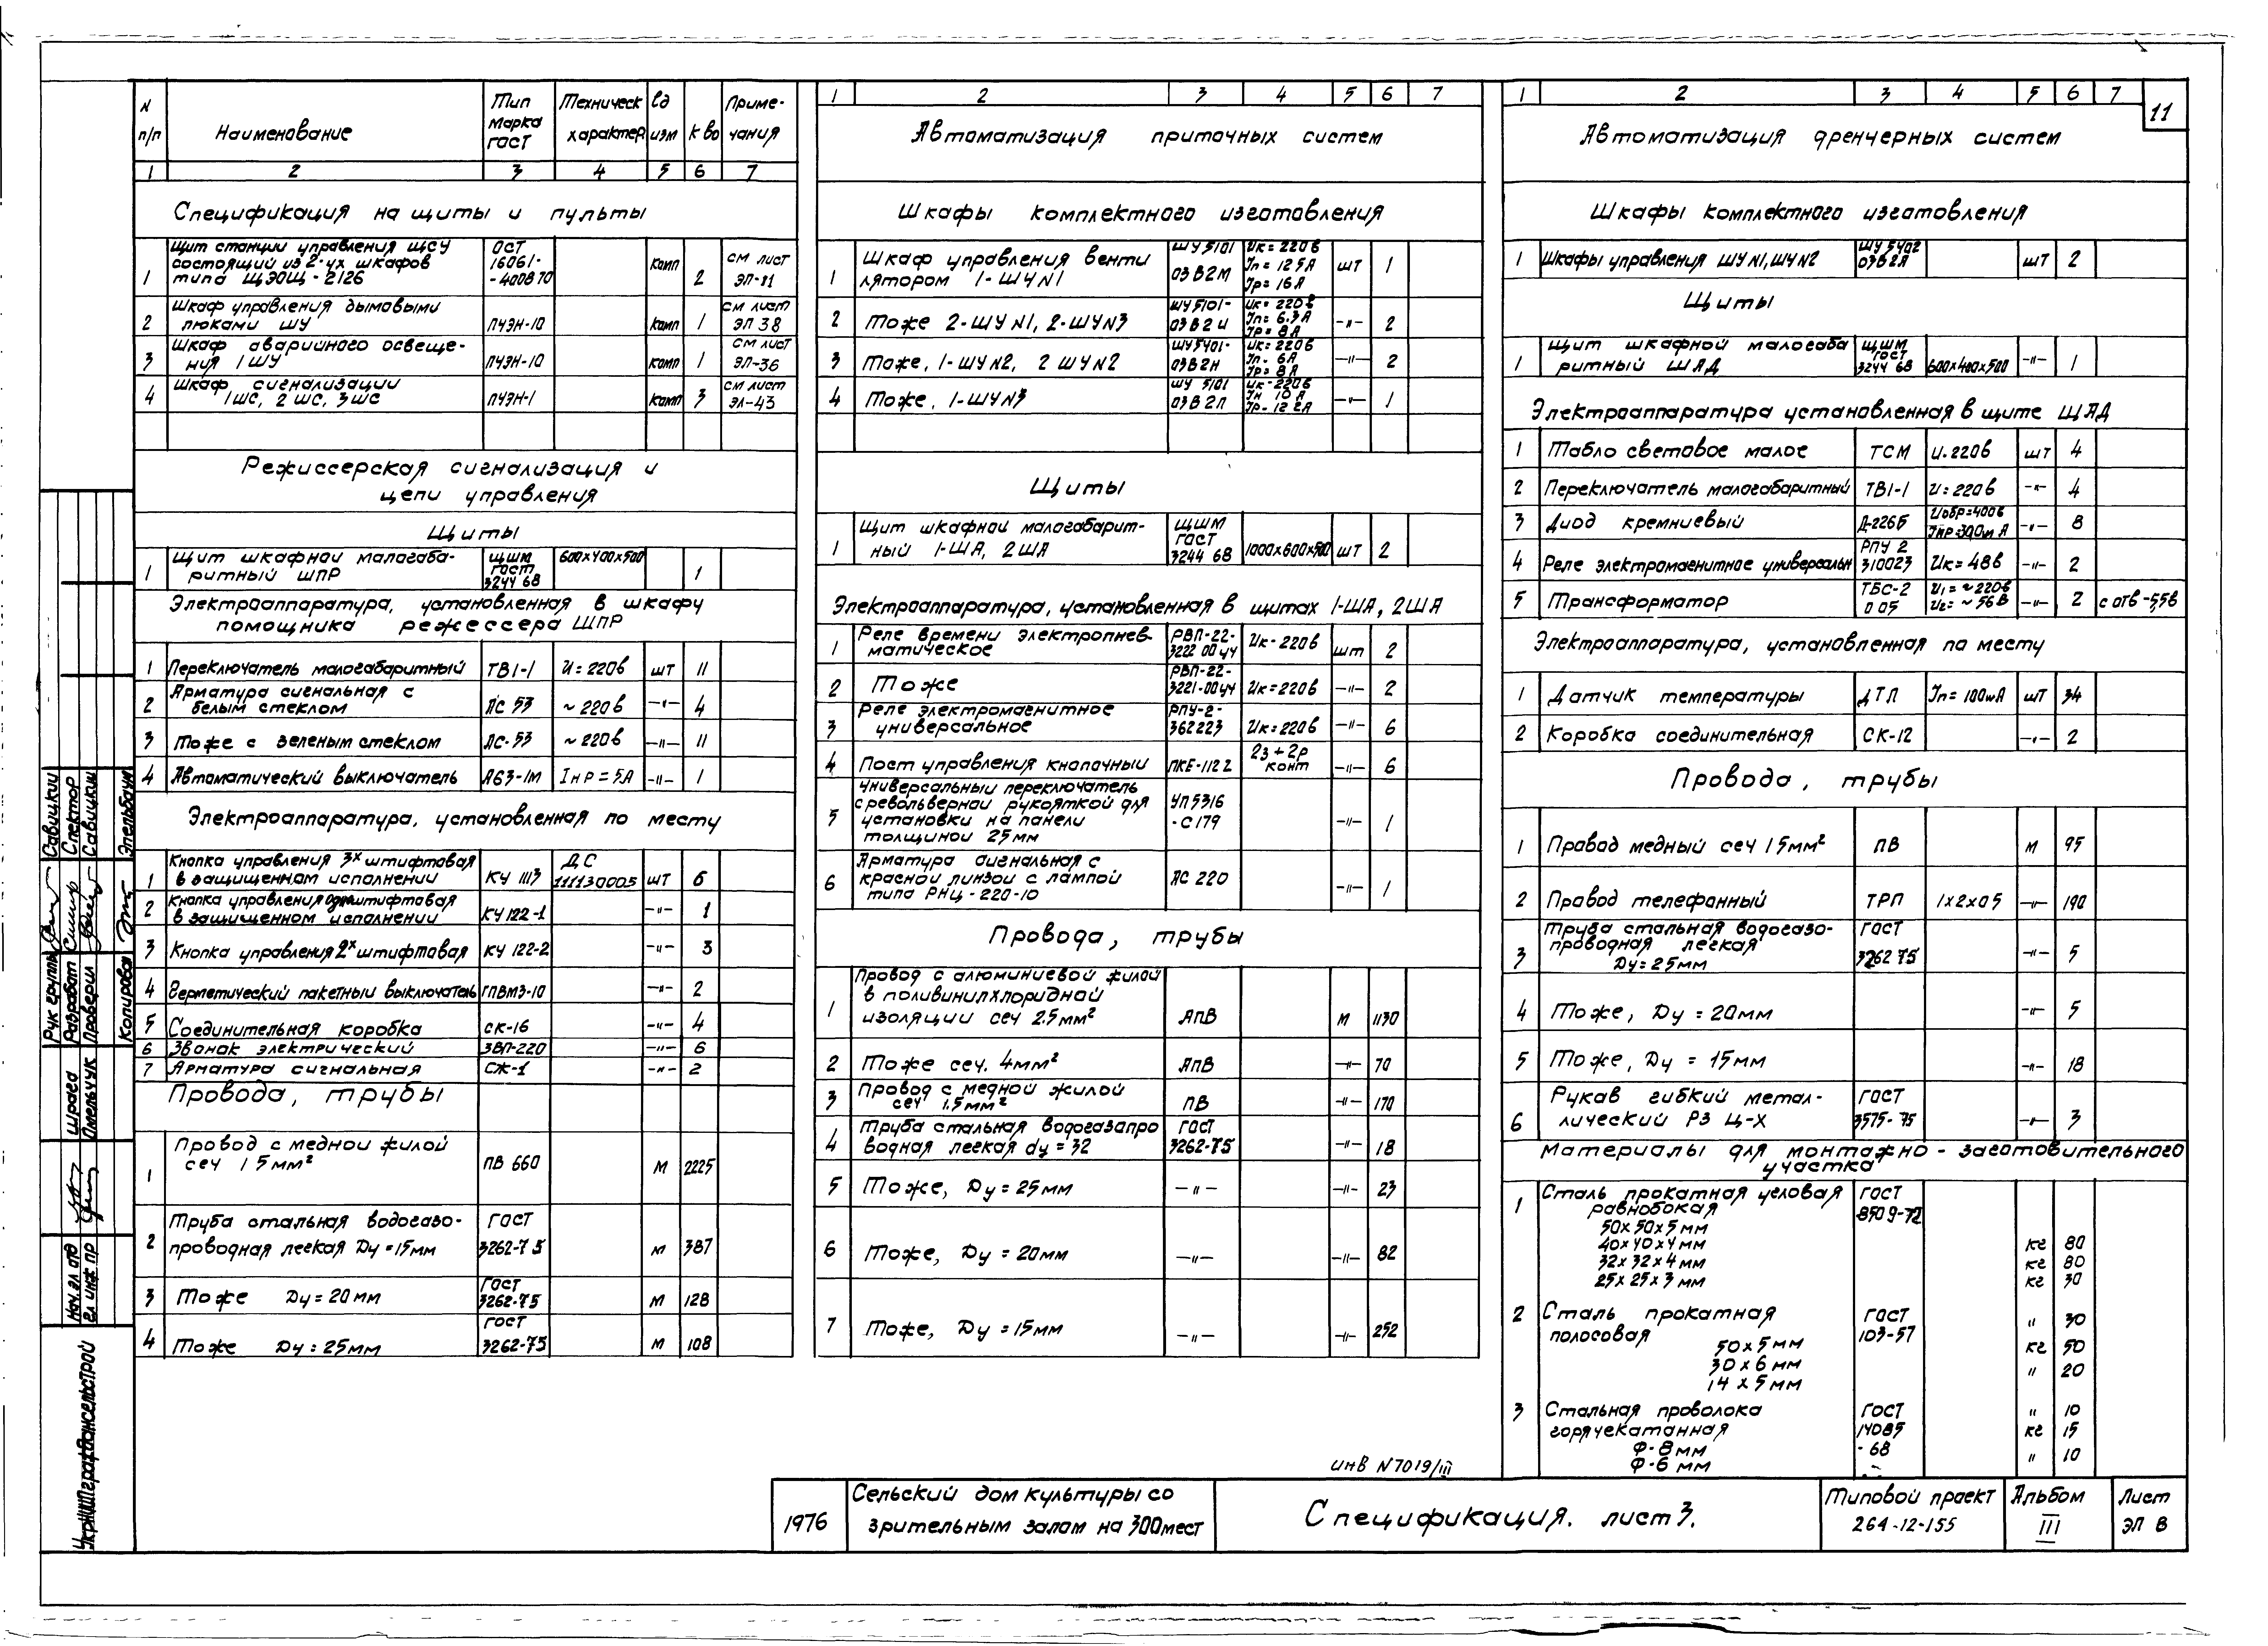 N п/п | Наименование | Тип марка гост | Техническ характер | Ед изм | К во | Приме-чания
1 | 2 | 3 | 4 | 5 | 6 | 7
Спецификация на щиты и пульты
1 | Щит станции управления ЩСУ состоящий из 2-ух шкафов типа ЩЭОЩ-2126 | ОСТ 16061-400870 | комп | 2 | см лист ЭЛ-11
2 | Шкаф управления дымовыми люками ШУ | ПУЭН-10 | комп | 1 | см лист ЭЛ 38
3 | Шкаф аварийного освеще-ния 1ШУ | ПУЭН-10 | комп | 1 | см лист ЭЛ-36
4 | Шкаф сигнализации 1ШС, 2ШС, 3ШС | ПУЭН-1 | комп | 3 | см лист ЭЛ-43
Режиссерская сигнализация и
цепи управления
Щиты
1 | Щит шкафной малогаба-ритный ШПР | ЩШМ гост 3244 68 | 600х400х500 | 1
Электроаппаратура, установленная в шкафу
помощника режессера ШПР
1 | Переключатель малогабаритный | ТВ1-1 | И=220в | шт | 11
2 | Арматура сигнальная с белым стеклом | АС 53 | ~220в | -"- | 4
3 | Тоже с зеленым стеклом | АС-53 | ~220в | -"- | 11
4 | Автоматический выключатель | А63-1М | Iнр=5А | -"- | 1
Электроаппаратура, установленная по месту
1 | Кнопка управления 3х штифтовая в защищенном исполнении | КУ 1113 | ДС 111130005 | шт | 6
2 | Кнопка управления одноштифтовая в защищенном исполнении | КУ 122-1 | -"- | 1
3 | Кнопка управления 2х штифтовая | КУ 122-2 | -"- | 3
4 | Герметический пакетный выключатель | ГПВМ3-10 | -"- | 2
5 | Соединительная коробка | СК-16 | -"- | 4
6 | Звонок электрический | ЗВП-220 | -"- | 6
7 | Арматура сигнальная | СЖ-1 | -"- | 2
Провода, трубы
1 | Провод с медной жилой сеч 1 5мм² | ПВ 660 | м | 2225
2 | Труба стальная водогазо-проводная легкая Ду=15мм | ГОСТ 3262-75 | м | 387
3 | Тоже Ду=20мм | ГОСТ 3262-75 | м | 128
4 | Тоже Ду=25мм | ГОСТ 3262-75 | м | 108
1 | 2 | 3 | 4 | 5 | 6 | 7
Автоматизация приточных систем
Шкафы комплектного изготовления
1 | Шкаф управления венти лятором 1-ШУN1 | ШУ5101 03В2М | Ик=220в Iп=12 5А Iр=16А | шт | 1
2 | Тоже 2-ШУN1, 2-ШУN3 | ШУ5101- 03В2И | Ик=220в Iп=6.3А Iр=8А | -"- | 2
3 | Тоже, 1-ШУN2, 2 ШУN2 | ШУ5401- 03В2Н | Ик=220в Iп-6А Iр=8А | -"- | 2
4 | Тоже, 1-ШУN3 | ШУ 5101 03В2Л | Ик-220в Iн 10А Iр-12 2А | -"- | 1
Щиты
1 | Щит шкафной малогабарит-ный 1-ША, 2ША | ЩШМ ГОСТ 3244 68 | 1000х600х500 | шт | 2
Электроаппаратура, установленная в щитах 1-ША, 2ША
1 | Реле времени электропнев-матическое | РВП-22-3222 00У4 | Ик-220в | шт | 2
2 | Тоже | РВП-22-3221-00У4 | Ик=220в | -"- | 2
3 | Реле электромагнитное универсальное | РПУ-2-362223 | Ик=220в | -"- | 6
4 | Пост управления кнопочный | ПКЕ-112 2 | 2з+2р конт | -"- | 6
5 | Универсальный переключатель с револьверной рукояткой для установки на панели толщиной 25мм | УП5316 -С179 | -"- | 1
6 | Арматура сигнальная с красной линзой с лампой типа РНЦ-220-10 | АС 220 | -"- | 1
Провода, трубы
1 | Провод с алюминиевой жилой в поливинилхлоридной изоляции сеч 2.5мм² | АПВ | м | 1130
2 | Тоже сеч. 4мм² | АПВ | -"- | 70
3 | Провод с медной жилой сеч 1.5мм² | ПВ | -"- | 170
4 | Труба стальная водогазапро водная легкая dу=32 | ГОСТ 3262-75 | -"- | 18
5 | Тоже, Ду=25мм | -"- | -"- | 23
6 | Тоже, Ду=20мм | -"- | -"- | 82
7 | Тоже, Ду=15мм | -"- | -"- | 252
1 | 2 | 3 | 4 | 5 | 6 | 7
11
Автоматизация дренчерных систем
Шкафы комплектного изготовления
1 | Шкафы управления ШУN1, ШУN2 | ШУ 5402 03В2Я | шт | 2
Щиты
1 | Щит шкафной малогаба ритный ШАД | ЩШМ ГОСТ 3244 68 | 600х400х500 | -"- | 1
Электроаппаратура установленная в щите ЩАД
1 | Табло световое малое | ТСМ | И-220в | шт | 4
2 | Переключатель малогабаритный | ТВ1-1 | И=220в | -"- | 4
3 | Диод кремниевый | Д-226Б | Иобр=400в Iпр=300мА | -"- | 8
4 | Реле электромагнитное универсальн | РПУ 2 310023 | Ик=48в | -"- | 2
5 | Трансформатор | ТБС-2 0 05 | И₁=~220в И₂=~56В | -"- | 2 | с отв-55в
Электроаппаратура, установленная по месту
1 | Датчик температуры | ДТЛ | Iп=100мА | шт | 34
2 | Коробка соединительная | СК-12 | -"- | 2
Провода, трубы
1 | Провод медный сеч 1 5мм² | ПВ | м | 95
2 | Провод телефонный | ТРП | 1х2х0 5 | -"- | 190
3 | Труба стальная водогазо-проводная легкая Ду=25мм | ГОСТ 3262 75 | -"- | 5
4 | Тоже, Ду=20мм | -"- | 5
5 | Тоже, Ду = 15мм | -"- | 18
6 | Рукав гибкий метал-лический РЗ Ц-Х | ГОСТ 3575-75 | -"- | 3
Материалы для монтажно-заготовительного
участка
1 | Сталь прокатная угловая | ГОСТ
равнобокая | 8509-72
50х50х5мм
40х40х4мм | кг | 80
32х32х4мм | кг | 80
25х25х3мм | кг | 30
2 | Сталь прокатная | ГОСТ | " | 30
полосовая | 103-57
50х5мм | кг | 50
30х6мм
14х5мм | " | 20
3 | Стальная проволока | ГОСТ | " | 10
горячекатанная | 14085 | кг | 15
Ф-8мм | -68
Ф-6мм | " | 10
инв N7019/III
1976
Сельский дом культуры со
зрительным залом на 300мест
Спецификация. лист 3.
Типовой проект
264-12-155
Альбом
III
Лист
ЭЛ 8
Савицкий
Спектор
Савицкий
Эпельбаум
Рук группы
Разработ
Проверил
Копировал
Шрага
Омельчук
Нач эл отд
Гл инж пр
УкрНИИГраждансельстрой